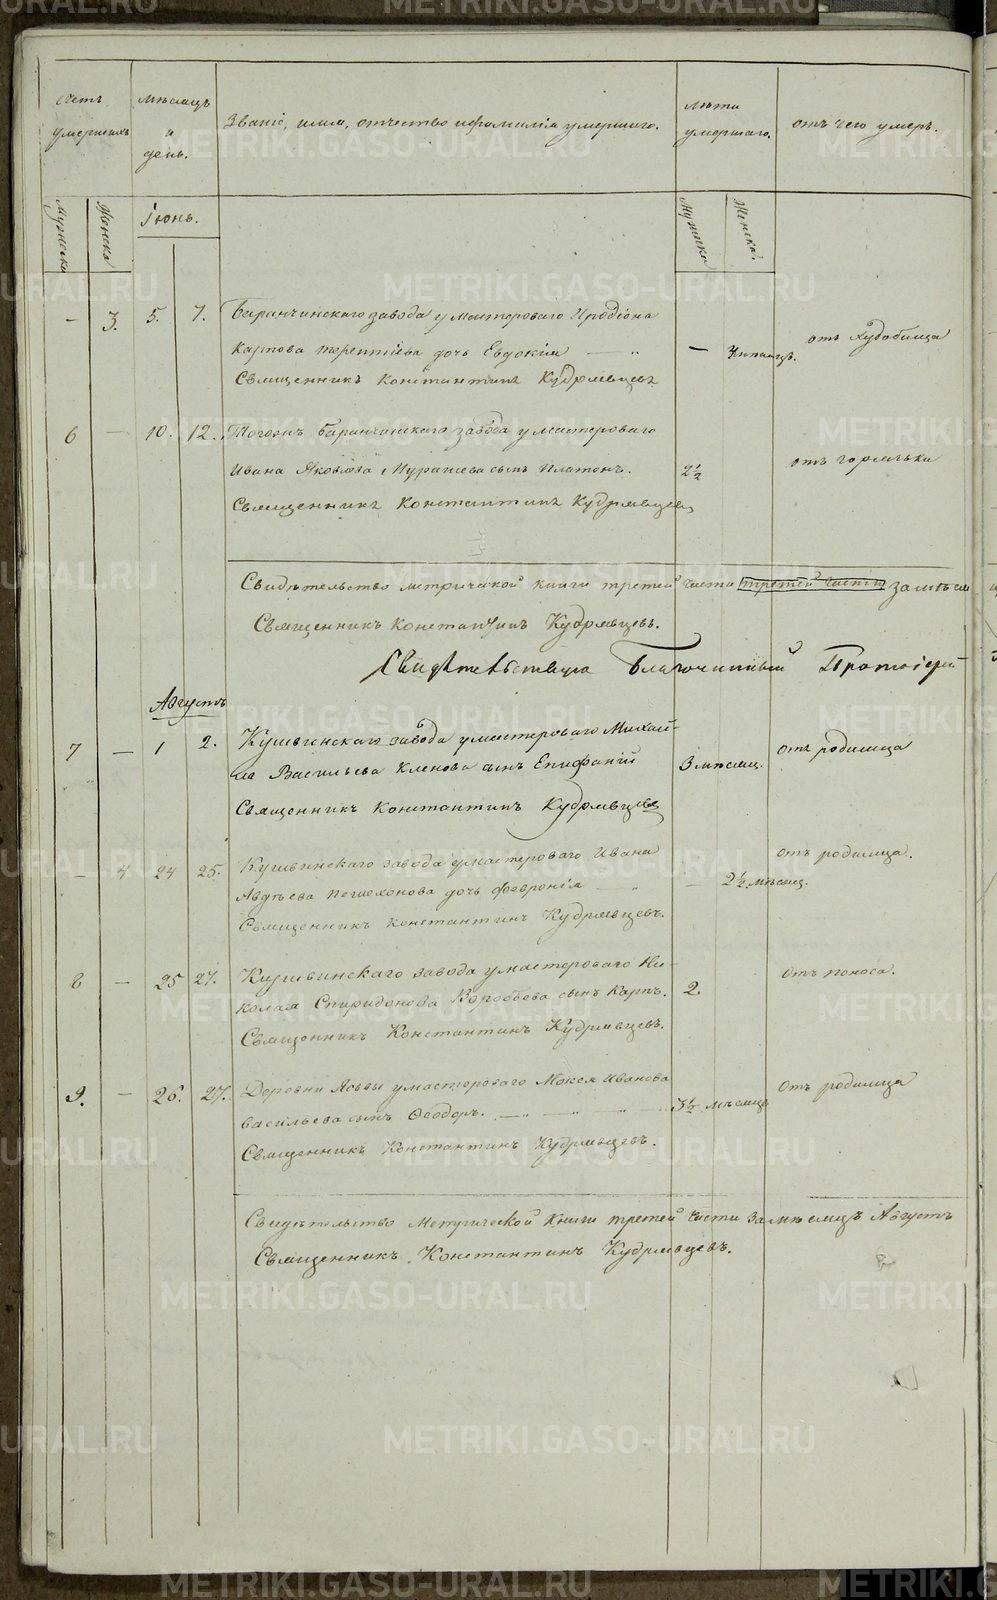 Счетъ умершихъ
мѣсяцъ и день.
Званіе, имя, отчество и фамилія умершаго.
лѣта умершаго.
отъ чего умеръ.
Мужеска
Женска
Іюнь.
Мужска
Женска.
— 3. 5. 7. Баранчинскаго завода у мастероваго Иродіона
Карпова Терентіева дочь Евдокія — „ — отъ худобища
Священникъ Константинъ Кудрявцевъ
6 — 10. 12. Тогожъ Баранчинскаго завода у мастероваго
Ивана Яковлева сынъ Платонъ. 2½ отъ горячьки
Священникъ Константинъ Кудрявцевъ
Свидѣтельство метрической книги третей части третей части за мѣсяц
Священникъ Константинъ Кудрявцевъ.
Свидѣтельствуа Благочинный Протоіерей
Августъ
7 — 1 2. Кушвинскаго завода у мастероваго Михай-
ла Васильева Кленова сынъ Епифаній 3 мѣсяц. отъ родимца
Священникъ Константинъ Кудрявцевъ
— 4 24 25. Кушвинскаго завода у мастероваго Ивана
Авдѣева Пешехонова дочь Февронія — „ — 2½ мѣсяц. отъ родимца.
Священникъ Константинъ Кудрявцевъ.
8 — 25 27. Кушвинскаго завода у мастероваго Ни-
колая Спиридонова Воробьева сынъ Карпъ. 2. отъ поноса.
Священникъ Константинъ Кудрявцевъ.
9. — 26. 27. Деревни Асьвы у мастероваго Мокея Иванова
Васильева сынъ Ѳеодоръ. 3½ мѣсяцъ отъ родимца
Священникъ Константинъ Кудрявцевъ.
Свидѣтельство Метрической книги третей части за мѣсяцъ Августъ
Священникъ Константинъ Кудрявцевъ.
METRIKI.GASO-URAL.RU